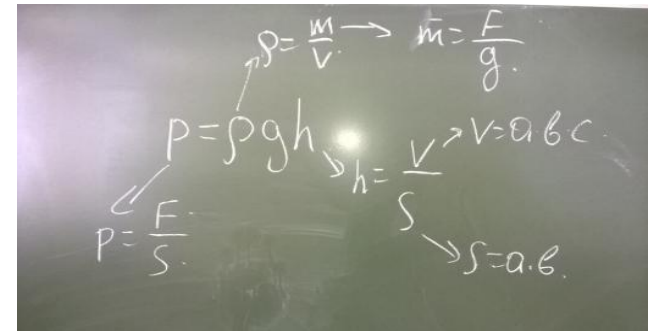 ρ = m/V. → m = F/g.
p = ρgh
h = V/S → V = a·в·c.
p = F/S.
S = a·в.